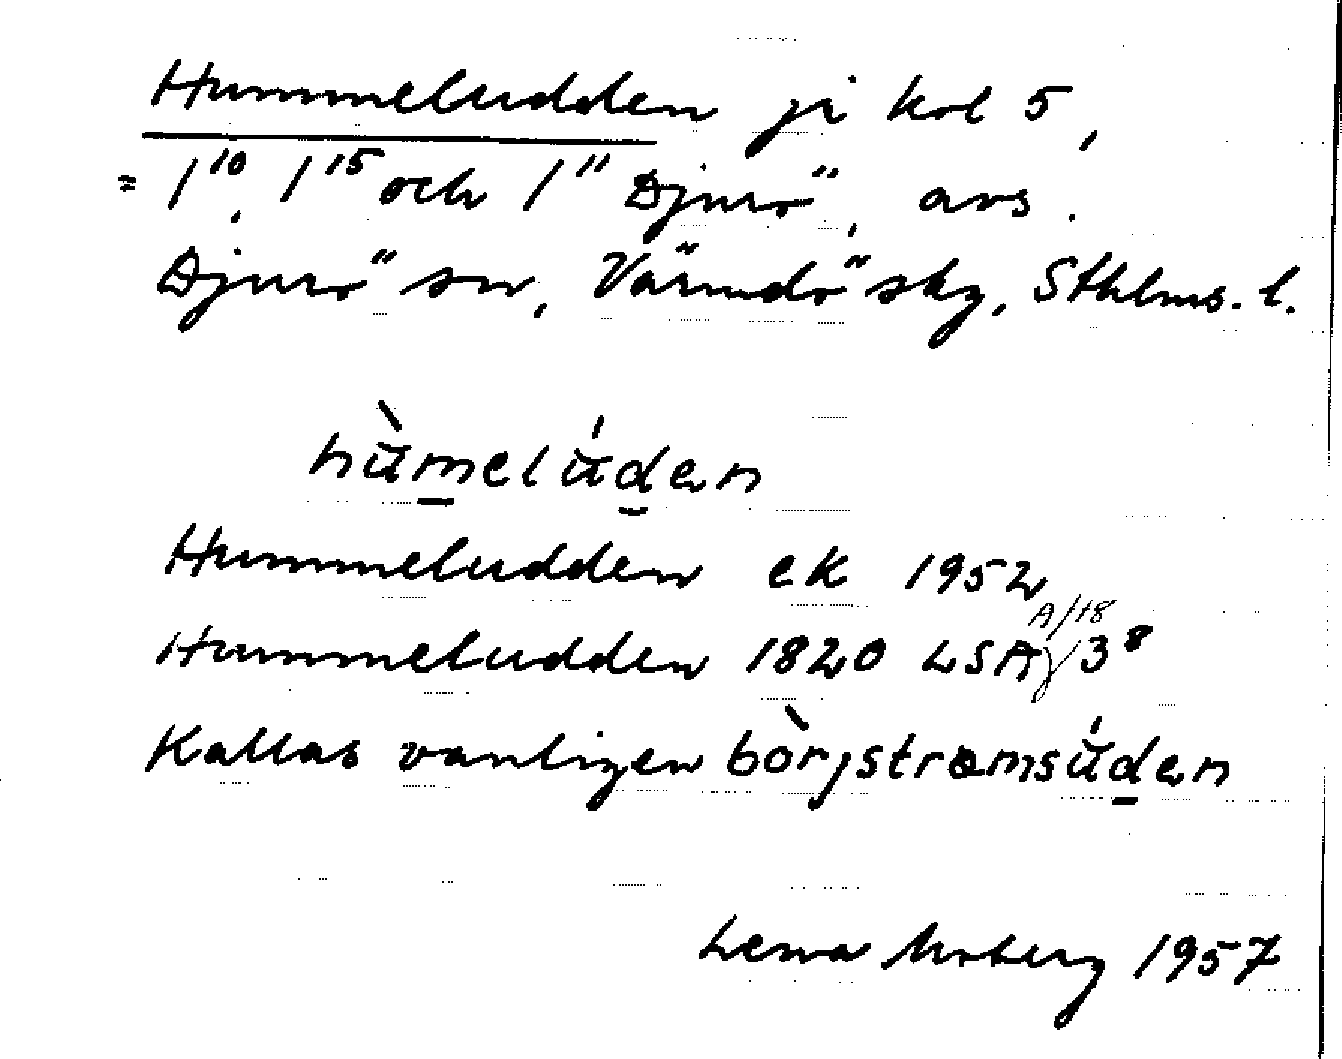 Hummeludden ji kol 5,
= 1¹⁰, 1¹⁵ och 1¹¹ Djurö, avs.
Djurö sn, Värmdö skg, Sthlms. l.
hùmelúden
Hummeludden ek 1952
A/18
Hummeludden 1820 LSA 3⁸
Kallas vanligen bòrjstromsúden
Lena Moberg 1957